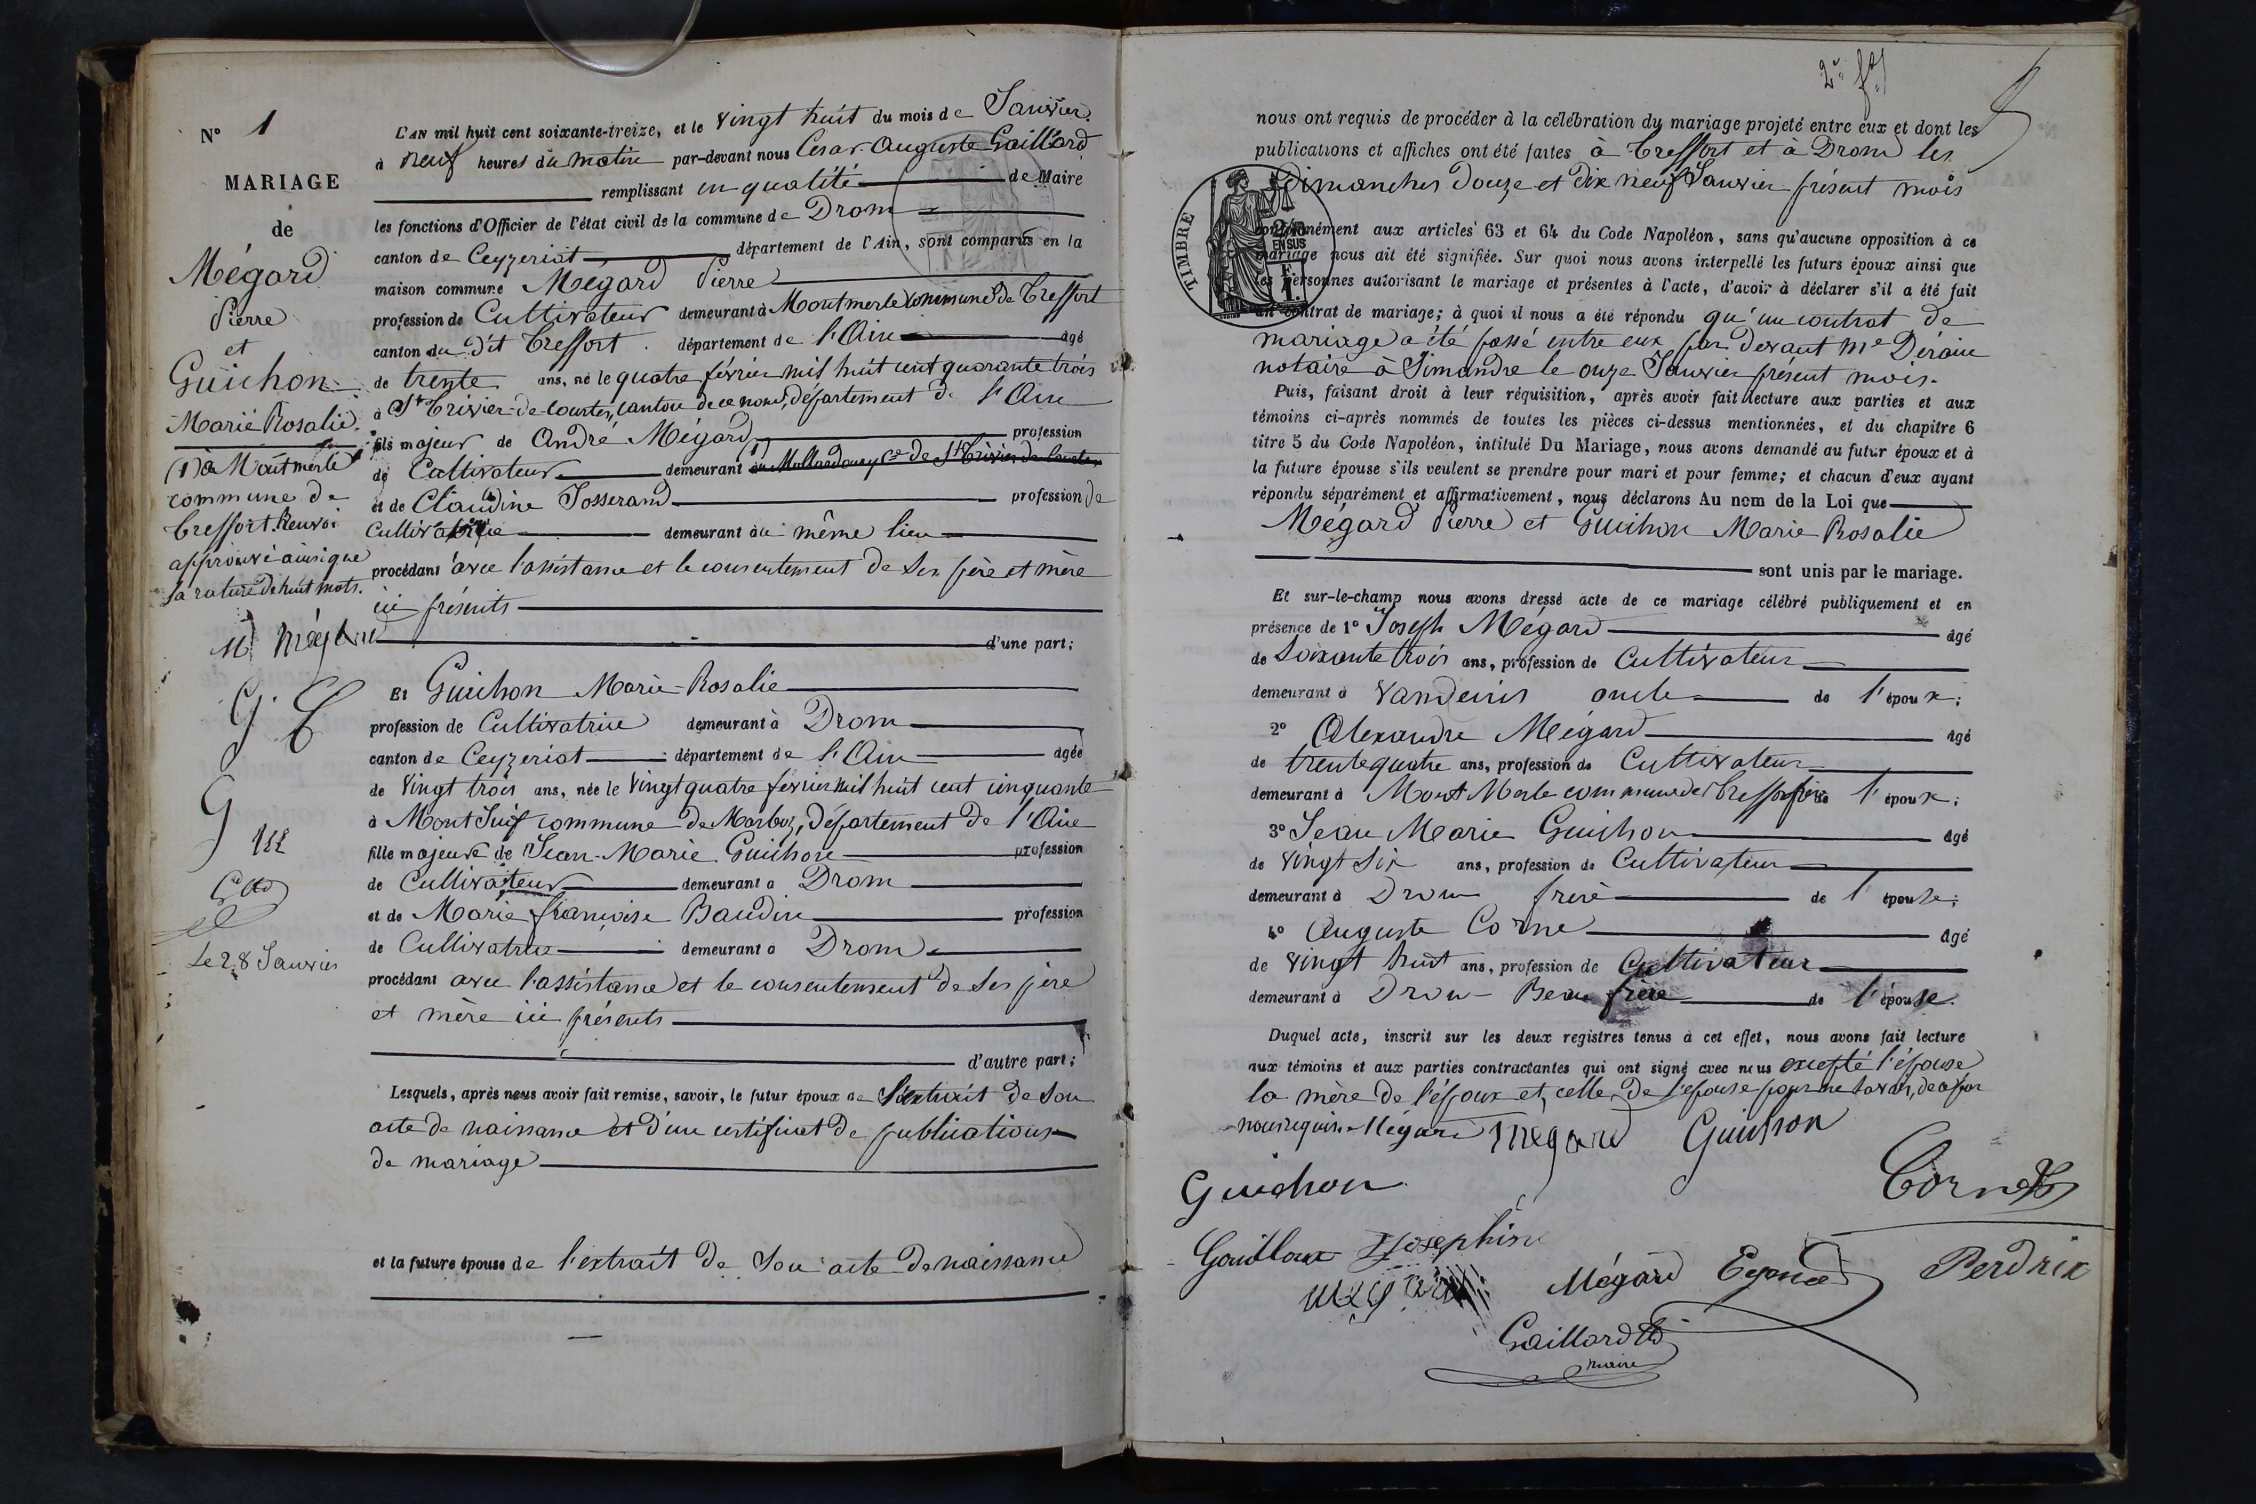 N° 1
MARIAGE
de
Mégard
Pierre
et
Guichon
Marie Rosalie
(1) à Montmerle
commune de
Treffort. Renvoi
approuvé ainsi que
la rature de huit mots.
M Mégard
G. C
G
Le 28 Janvier
L'AN mil huit cent soixante-treize, et le vingt huit du mois de Janvier
à neuf heures du matin par-devant nous César Auguste Gaillard
remplissant en qualité de Maire
les fonctions d'Officier de l'état civil de la commune de Drom
canton de Ceyzeriat département de l'Ain, sont comparus en la
maison commune Mégard Pierre
profession de Cultivateur demeurant à Montmerle commune de Treffort
canton du dit Treffort département de l'Ain âgé
de trente ans, né le quatre février mil huit cent quarante trois
à St Trivier-de-Courtes, canton de ce nom, département de l'Ain
fils majeur de André Mégard profession
de Cultivateur demeurant (1) de St Trivier de Courtes
et de Claudine Josserand profession de
Cultivatrice demeurant au même lieu
procédant avec l'assistance et le consentement de ses père et mère
ici présents
d'une part;
Et Guichon Marie-Rosalie
profession de Cultivatrice demeurant à Drom
canton de Ceyzeriat département de l'Ain âgée
de vingt trois ans, née le vingt quatre février mil huit cent cinquante
à Mont Juif commune de Marboz, département de l'Ain
fille majeure de Jean-Marie Guichon profession
de Cultivateur demeurant a Drom
et de Marie françoise Baudin profession
de Cultivatrice demeurant a Drom
procédant avec l'assistance et le consentement de ses père
et mère ici présents
d'autre part;
Lesquels, après nous avoir fait remise, savoir, le futur époux de l'extrait de son
acte de naissance et d'un certificat de publications
de mariage
et la future épouse de l'extrait de son acte de naissance
2e ft
nous ont requis de procéder à la célébration du mariage projeté entre eux et dont les
publications et affiches ont été faites à Treffort et à Drom les
Dimanches douze et dix neuf Janvier présent mois
TIMBRE
2/10
EN SUS
F.
1.
conformément aux articles 63 et 64 du Code Napoléon, sans qu'aucune opposition à ce
mariage nous ait été signifiée. Sur quoi nous avons interpellé les futurs époux ainsi que
les personnes autorisant le mariage et présentes à l'acte, d'avoir à déclarer s'il a été fait
un contrat de mariage; à quoi il nous a été répondu qu'un contrat de
mariage a été passé entre eux par devant Me Déroin
notaire à Simandre le onze Janvier présent mois.
Puis, faisant droit à leur réquisition, après avoir fait lecture aux parties et aux
témoins ci-après nommés de toutes les pièces ci-dessus mentionnées, et du chapitre 6
titre 5 du Code Napoléon, intitulé Du Mariage, nous avons demandé au futur époux et à
la future épouse s'ils veulent se prendre pour mari et pour femme; et chacun d'eux ayant
répondu séparément et affirmativement, nous déclarons Au nom de la Loi que
Mégard Pierre et Guichon Marie Rosalie
sont unis par le mariage.
Et sur-le-champ nous avons dressé acte de ce mariage célébré publiquement et en
présence de 1° Joseph Mégard âgé
de soixante trois ans, profession de Cultivateur
demeurant à Vandeins oncle de l'époux;
2° Alexandre Mégard âgé
de trente quatre ans, profession de Cultivateur
demeurant à Mont Merle commune de Treffort frère de l'époux;
3° Jean Marie Guichon âgé
de vingt six ans, profession de Cultivateur
demeurant à Drom frère de l'épouse;
4° Auguste Corne âgé
de vingt huit ans, profession de Cultivateur
demeurant à Drom Beau frère de l'épouse.
Duquel acte, inscrit sur les deux registres tenus à cet effet, nous avons fait lecture
aux témoins et aux parties contractantes qui ont signé avec nous excepté l'épouse
la mère de l'époux et celle de l'épouse pour ne savoir, de ce par
nous requis. Mégard Mégard Guichon
Guichon Corne
Josephine
Mégard Perdrix
Gaillard
maire